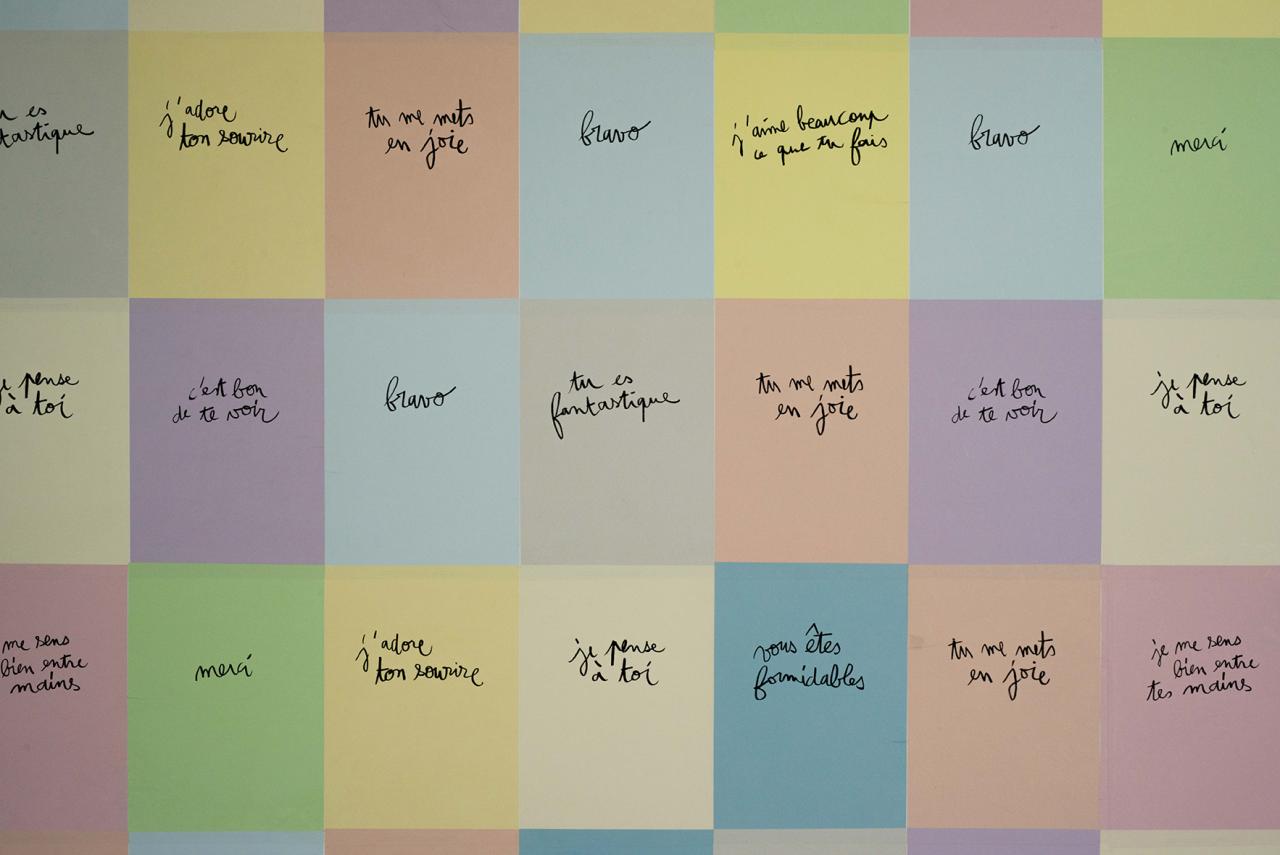 es
tastique
j'adore
ton sourire
tu me mets
en joie
bravo
j'aime beaucoup
ce que tu fais
bravo
merci
pense
à toi
c'est bon
de te voir
bravo
tu es
fantastique
tu me mets
en joie
c'est bon
de te voir
je pense
à toi
me sens
bien entre
mains
merci
j'adore
ton sourire
je pense
à toi
vous êtes
formidables
tu me mets
en joie
je me sens
bien entre
tes mains